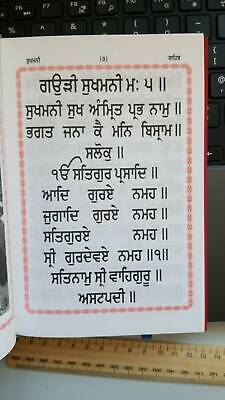 ਸੁਖਮਨੀ (੩) ਸਾਹਿਬ
ਗਉੜੀ ਸੁਖਮਨੀ ਮਃ ੫ ॥
ਸੁਖਮਨੀ ਸੁਖ ਅੰਮ੍ਰਿਤ ਪ੍ਰਭ ਨਾਮੁ ॥
ਭਗਤ ਜਨਾ ਕੈ ਮਨਿ ਬਿਸ੍ਰਾਮ॥
ਸਲੋਕੁ ॥
ੴ ਸਤਿਗੁਰ ਪ੍ਰਸਾਦਿ ॥
ਆਦਿ ਗੁਰਏ ਨਮਹ ॥
ਜੁਗਾਦਿ ਗੁਰਏ ਨਮਹ ॥
ਸਤਿਗੁਰਏ ਨਮਹ ॥
ਸ੍ਰੀ ਗੁਰਦੇਵਏ ਨਮਹ ॥੧॥
ਸਤਿਨਾਮੁ ਸ੍ਰੀ ਵਾਹਿਗੁਰੂ ॥
ਅਸਟਪਦੀ ॥